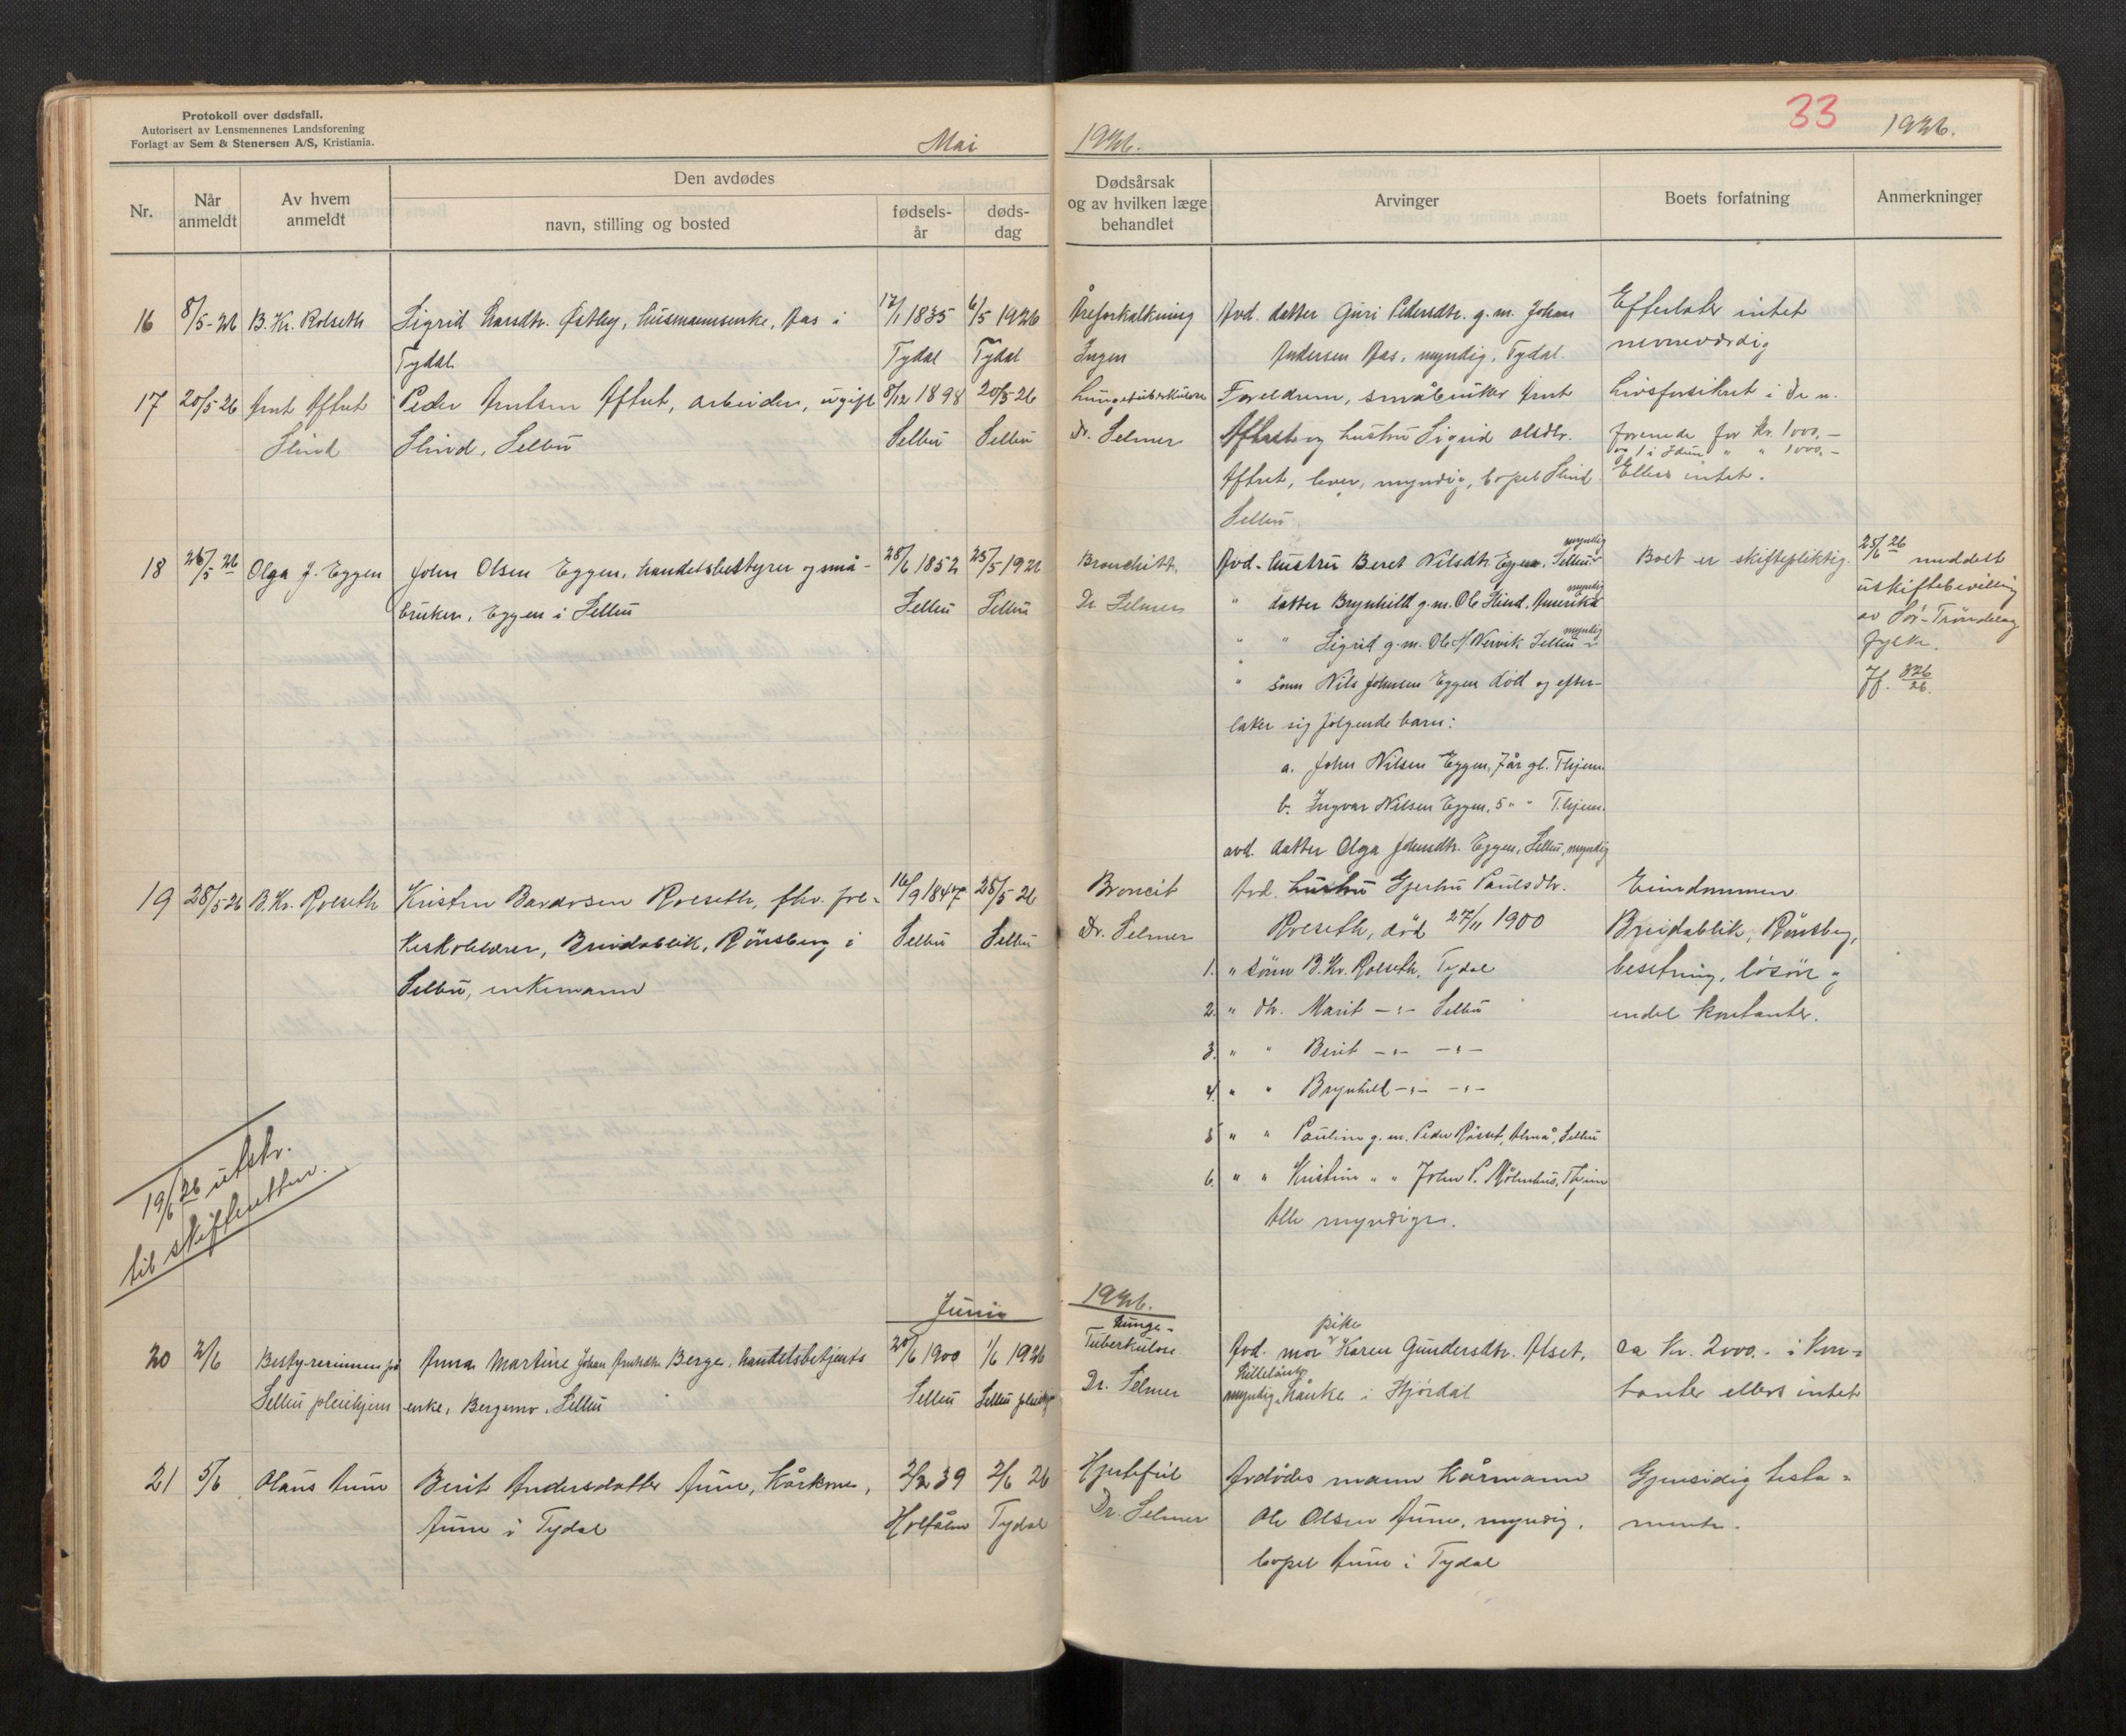 Protokoll over dødsfall.
Autorisert av Lensmennenes Landsforening
Forlagt av Sem & Stenersen A/S, Kristiania.
Mai
1926.
33
1926.
Nr.
Når
anmeldt
Av hvem
anmeldt
Den avdødes
navn, stilling og bosted
fødsels-
år
døds-
dag
Dødsårsak
og av hvilken læge
behandlet
Arvinger
Boets forfatning
Anmerkninger
16 8/5-26 B. Kr. Rolseth Sigrid Larsdtr. Østby, husmannsenke, Aas i 17/1 1835 6/5 1926 Åreforkalkning Avd. datter Guri Pedersdtr. g.m. Johan Efterlater intet
Tydal Tydal Tydal Ingen Andersen Aas, myndig, Tydal. nevneværdig
17 20/5 26 Arnt Aftret Peder Arntsen Aftret, arbeider, ugift 8/12 1898 20/5-26 Lungetuberkulose Foreldrene, småbruker Arnt Livsforsikret i De n.
Slind Slind, Selbu Selbu Selbu Dr. Selmer Aftret og hustru Sigrid Olsdtr. forenede for kr. 1000,-
og i Idun " " 1000,-
Aftret, lever, myndig, bopel Slind Ellers intet.
Selbu
18 26/5 26 Olga J. Eggen John Olsen Eggen, handelsbestyrer og små- 28/6 1852 25/5 1926 Bronchitt. Avd. hustru Beret Nilsdtr. Eggen, Selbu myndig Boet er skiftepliktig. 25/6 26 meddelt
bruker, Eggen i Selbu Selbu Selbu Dr. Selmer " datter Brynhild g.m. Ole Slind, Amerika myndig uskiftebevilling
av Sør-Trøndelag
" " Sigrid g.m. Ole H. Nervik Selbu myndig fylke.
" sønn Nils Johnsen Eggen død og efter- Jf. 326/26.
later sig følgende barn:
a. John Nilsen Eggen, 7 år gl. Thjem.
b. Ingvar Nilsen Eggen, 5 " " T.hjem.
avd. datter Olga Johnsdtr. Eggen, Selbu, myndig
19 28/5-26 B. Kr. Rolseth Kristen Bardosen Rolseth, fhv. fol- 16/9 1847 25/5 26 Broncit Avd. hustru Gjertru Paulsdtr. Eiendommen
keskolelærer, Breidablik, Rønsberg i Selbu Selbu Dr. Selmer Rolseth, død 27/11 1900 Breidablik, Rønsberg,
Selbu, enkemann 1. " sønn B. Kr. Rolseth, Tydal besetning, løsøre og
2. " dtr. Marit -"- Selbu endel kontanter.
3. " " Berit -"- -"-
4. " " Brynhild -"- -"-
5 " " Pauline g.m. Peder Røset, Alma, Selbu
6. " " Kristine " " John P. Mølnhus, Thjem
Alle myndige.
19/6 26 utskr.
til skifteretten.
Juni
1926.
20 2/6 Bestyrerinnen på Anna Martine Johan Arntsdtr. Berge, handelsbetjents 20/6 1900 1/6 1926 Lunge-
Tuberkulose Avd. mor, pike Karen Gundersdtr. Alset, ca kr. 2000.- i kon-
Selbu pleiehjem enke, Bergemo, Selbu Selbu Selbu pleiehjem Dr. Selmer myndig, Lillelånke Lånke i Stjørdal tanter ellers intet
21 5/6 Olaus Aune Berit Andersdatter Aune, kårkone, 2/2 39 2/6 26 Hjertefeil Avdødes mann kårmann Gjensidig testa-
Aune i Tydal Holtålen Tydal Dr. Selmer Ole Olsen Aune, myndig, mente.
bopel Aune i Tydal